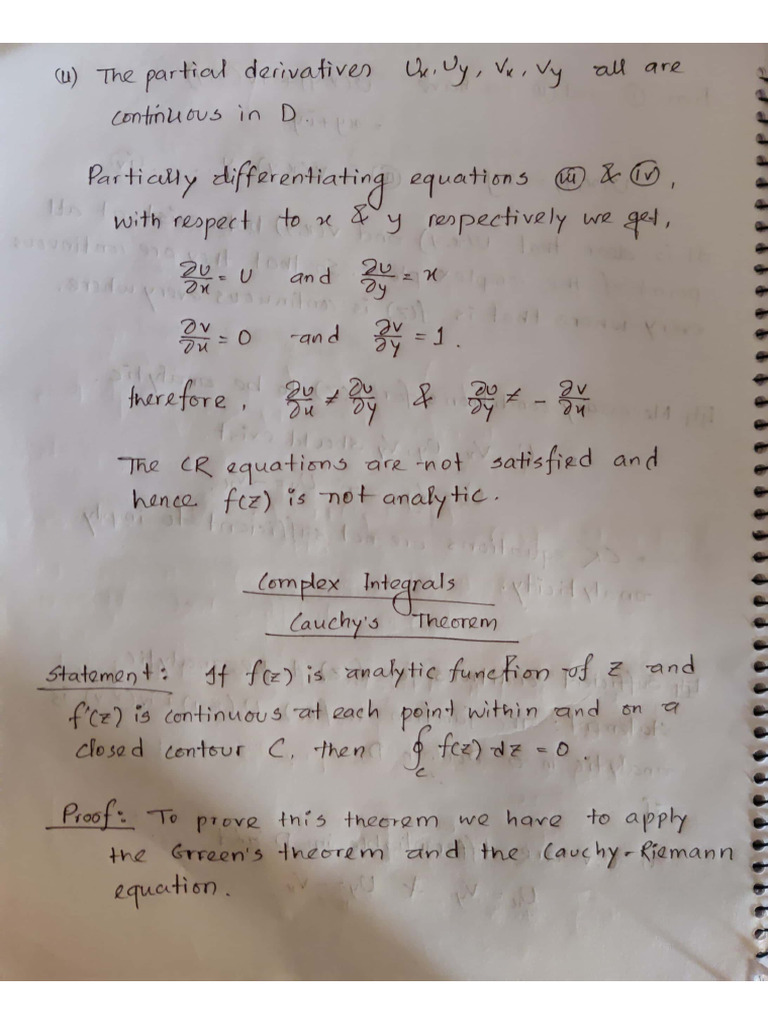 (ii) The partial derivatives Ux, Uy, Vx, Vy all are
continuous in D.
Partially differentiating equations (iii) & (iv),
with respect to x & y respectively we get,
∂u/∂x = U and ∂u/∂y = x
∂v/∂x = 0 and ∂v/∂y = 1.
therefore, ∂u/∂x ≠ ∂u/∂y & ∂u/∂y ≠ - ∂v/∂x
The CR equations are not satisfied and
hence f(z) is not analytic.
Complex Integrals
Cauchy's Theorem
Statement: If f(z) is analytic function of z and
f'(z) is continuous at each point within and on a
closed contour C, then ∮c f(z) dz = 0.
Proof: To prove this theorem we have to apply
the Grreen's theorem and the Cauchy-Riemann
equation.